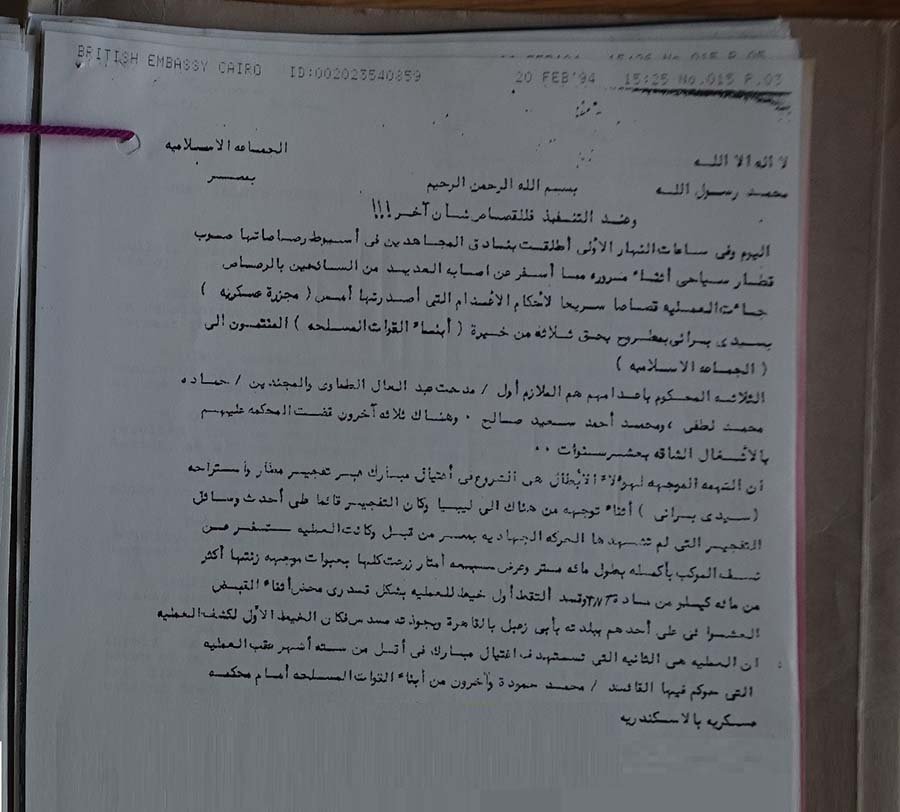 BRITISH EMBASSY CAIRO ID:002023540859 20 FEB'94 15:25 No.015 P.03
لا اله الا الله الجماعه الاسلاميه
محمد رسول الله بسم الله الرحمن الرحيم بمصر
وعند التنفيذ فللقصاص شأن آخر !!!
اليوم وفى ساعات النهار الأولى أطلقت بنادق المجاهدين فى أسيوط رصاصاتها صوب
قطار سياحى أثناء مروره مما أسفر عن اصابه العديد من السائحين بالرصاص
جاءت العمليه قصاصا سريحا لأحكام الاعدام التى أصدرتها أمس ( مجزرة عسكريه )
بسيدى برانى بمطروح بحق ثلاثه من خيرة ( أبناء القوات المسلحه ) المنتمون الى
( الجماعه الاسلاميه )
الثلاثه المحكوم باعدامهم هم الملازم أول / مدحت عبد العال الطحاوى والمجندين / حماده
محمد لطفى ، ومحمد أحمد سعيد صالح ٠ وهناك ثلاثه آخرون قضت المحكمه عليهم
بالأشغال الشاقه بعشر سنوات ٠٠
ان التهمه الموجهه لهؤلاء الأبطال هى الشروع فى أغتيال مبارك عبر تفجير مطار وأستراحه
( سيدى برانى ) أثناء توجهه من هناك الى ليبيا وكان التفجير قائما على أحدث وسائل
التفجير التى لم تشهدها الحركه الجهاديه بمصر من قبل وكانت العمليه ستسفر عن
نسف الموكب بأكمله بطول مائه متر وعرض سبعه أمتار زرعت كلها بعبوات موجهه زنتها أكثر
من مائه كيلو من مادة TNT وقد ألتقط أول خيط للعمليه بشكل قدرى محض أثناء القبض
العشوائى على أحدهم ببلدته بأبى زعبل بالقاهرة وبحوزته مسدس فكان الخيط الأول لكشف العمليه
ان العمليه هى الثانيه التى تستهدف اغتيال مبارك فى أقل من سته أشهر عقب العمليه
التى حوكم فيها القائد / محمد حمودة وآخرون من أبناء القوات المسلحه أمام محكمه
عسكريه بالاسكندريه